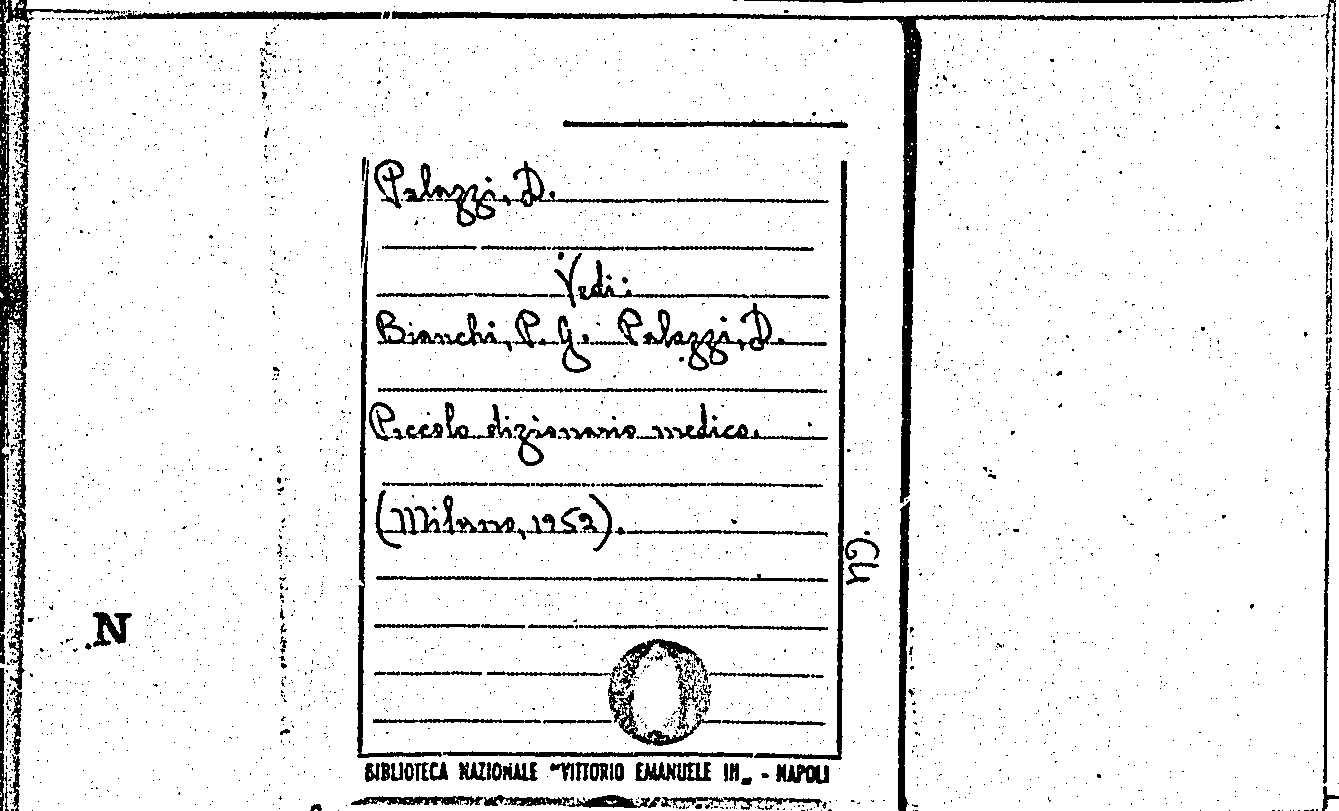 Palazzi, D.
Vedi:
Bianchi, P. G. Palazzi, D.
Piccolo dizionario medico.
(Milano, 1952).
N
BIBLIOTECA NAZIONALE "VITTORIO EMANUELE III„ - NAPOLI